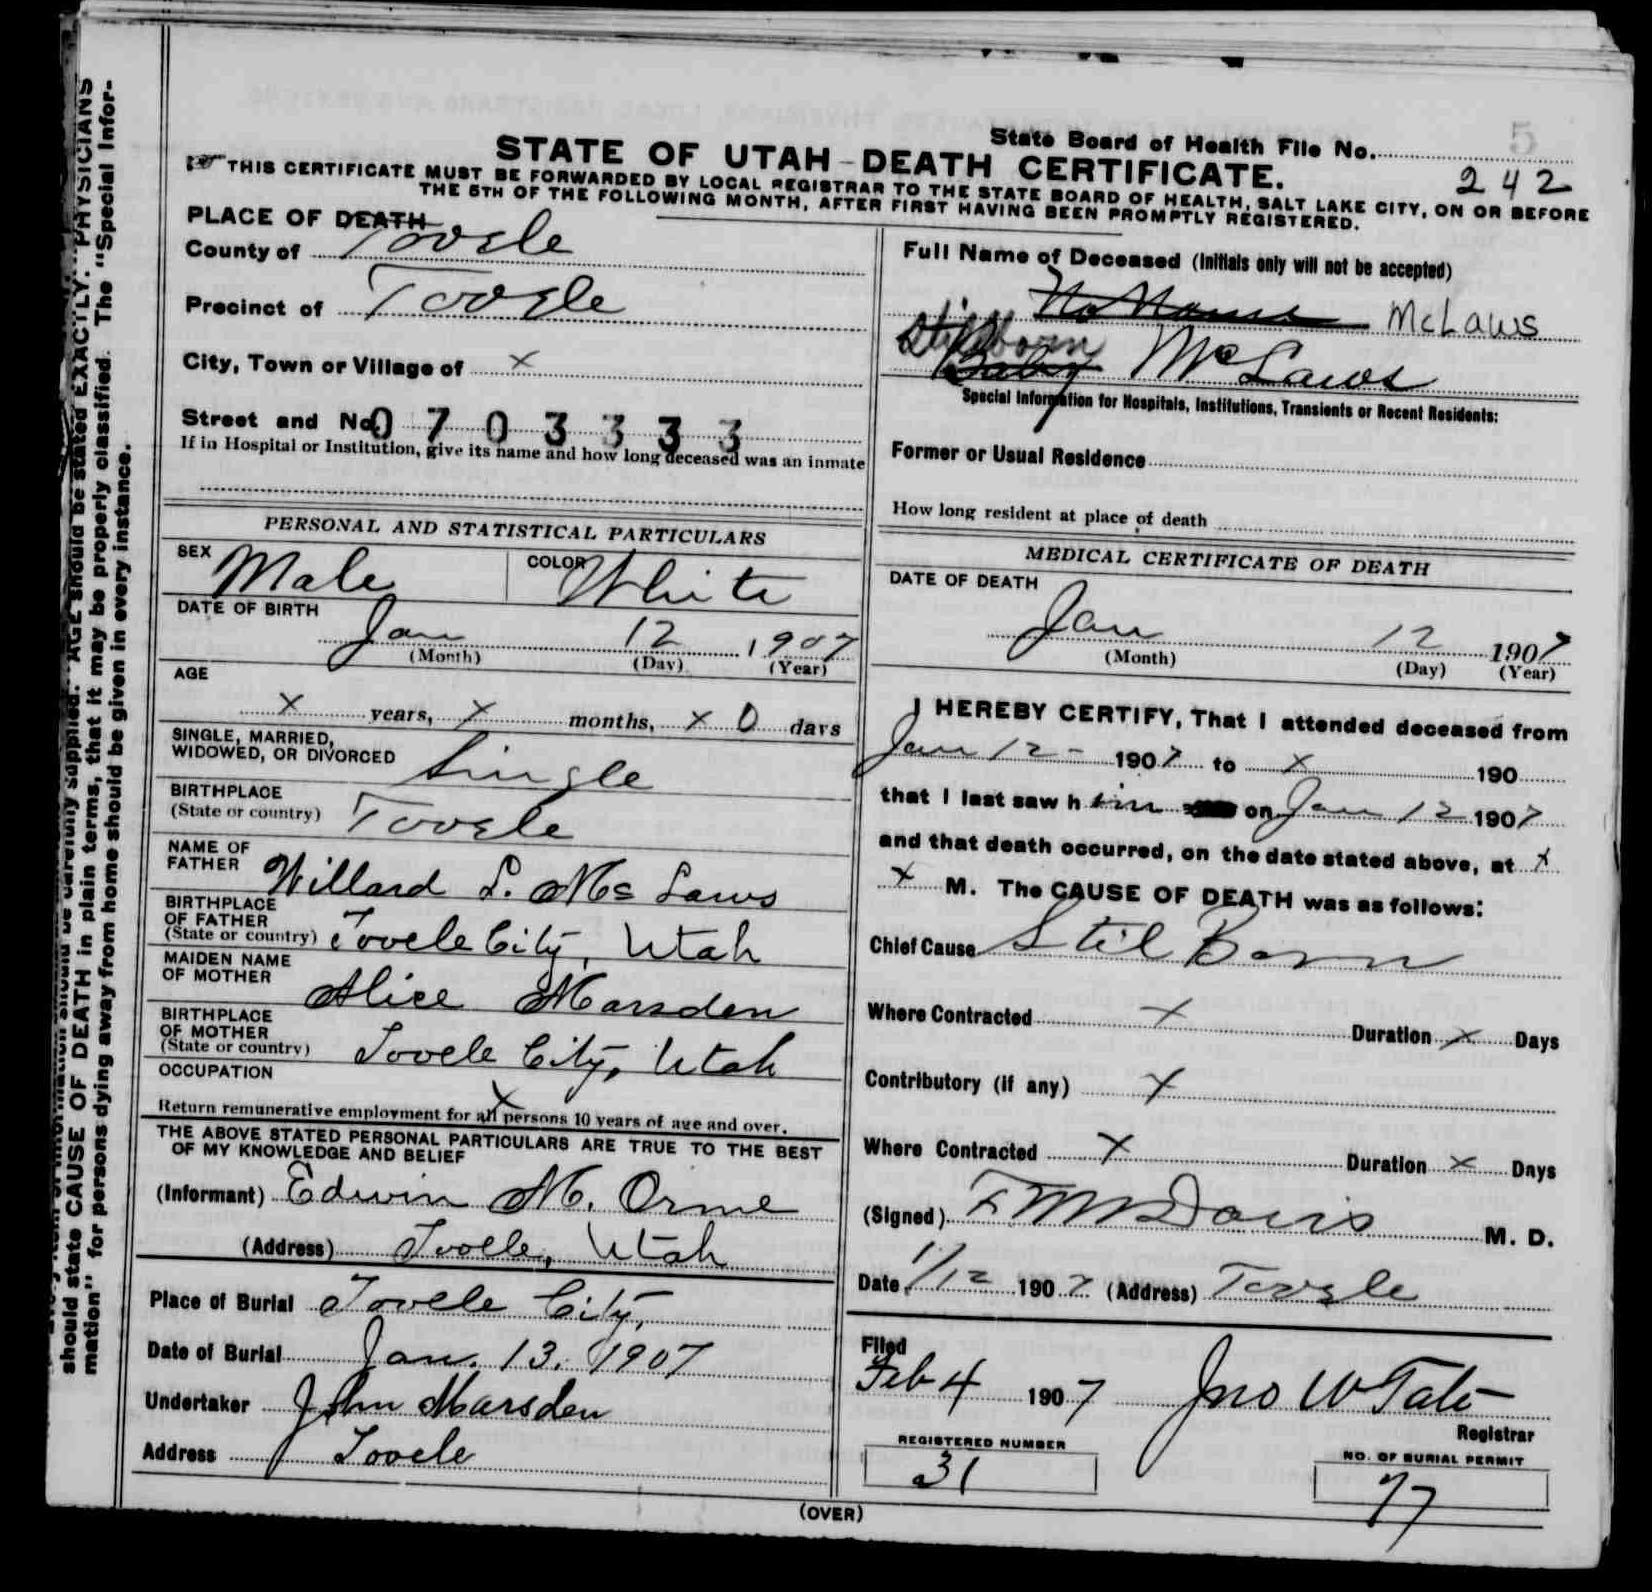 State Board of Health File No. 5
242
STATE OF UTAH - DEATH CERTIFICATE.
THIS CERTIFICATE MUST BE FORWARDED BY LOCAL REGISTRAR TO THE STATE BOARD OF HEALTH, SALT LAKE CITY, ON OR BEFORE
THE 5TH OF THE FOLLOWING MONTH, AFTER FIRST HAVING BEEN PROMPTLY REGISTERED.
PLACE OF DEATH
County of Tooele
Precinct of Tooele
City, Town or Village of x
Street and No. 0703333
If in Hospital or Institution, give its name and how long deceased was an inmate
Full Name of Deceased (Initials only will not be accepted)
No Name McLaws
Stillborn
Baby McLaws
Special Information for Hospitals, Institutions, Transients or Recent Residents:
Former or Usual Residence
How long resident at place of death
PERSONAL AND STATISTICAL PARTICULARS
SEX Male COLOR White
DATE OF BIRTH
Jan 12 1907
(Month) (Day) (Year)
AGE
x years, x months, x 0 days
SINGLE, MARRIED,
WIDOWED, OR DIVORCED Single
BIRTHPLACE
(State or country) Tooele
NAME OF
FATHER Willard L. McLaws
BIRTHPLACE
OF FATHER
(State or country) Tooele City, Utah
MAIDEN NAME
OF MOTHER Alice Marsden
BIRTHPLACE
OF MOTHER
(State or country) Tooele City, Utah
OCCUPATION
x
Return remunerative employment for all persons 10 years of age and over.
THE ABOVE STATED PERSONAL PARTICULARS ARE TRUE TO THE BEST
OF MY KNOWLEDGE AND BELIEF
(Informant) Edwin M. Orme
(Address) Tooele, Utah
Place of Burial Tooele City,
Date of Burial Jan. 13. 1907
Undertaker John Marsden
Address Tooele
MEDICAL CERTIFICATE OF DEATH
DATE OF DEATH
Jan 12 1907
(Month) (Day) (Year)
I HEREBY CERTIFY, That I attended deceased from
Jan 12 - 1907 to x 190
that I last saw him on Jan 12 1907
and that death occurred, on the date stated above, at x
x M. The CAUSE OF DEATH was as follows:
Chief Cause Stil Born
Where Contracted x Duration x Days
Contributory (if any) x
Where Contracted x Duration x Days
(Signed) F M Davis M. D.
Date 1/12 1907 (Address) Tooele
Filed
Feb 4 1907 Jno W Tate
Registrar
REGISTERED NUMBER
31
NO. OF BURIAL PERMIT
77
(OVER)
AGE should be stated EXACTLY. PHYSICIANS
should state CAUSE OF DEATH in plain terms, that it may be properly classified. The "Special Infor-
mation" for persons dying away from home should be given in every instance.